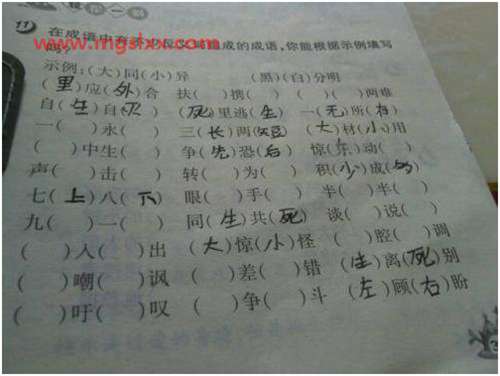 www.mgslxx.com
11 在成语中有 组成的成语,你能根据示例填写
吗?
示例:(大)同(小)异 (黑)(白)分明
(里)应(外)合 扶( )携( ) ( )( )两难
自(生)自(灭) (死)里逃(生) 一(无)所(有)
一( )永( ) 三(长)两(短) (大)材(小)用
( )中生( ) 争(先)恐(后) 惊( )动( )
声( )击( ) 转( )为( ) 积(小)成(多)
七(上)八(下) 眼( )手( ) 半( )半( )
九( )一( ) 同(生)共(死) 谈( )说( )
( )入( )出 (大)惊(小)怪 ( )腔( )调
( )嘲( )讽 ( )差( )错 (生)离(死)别
( )吁( )叹 ( )争( )斗 (左)顾(右)盼